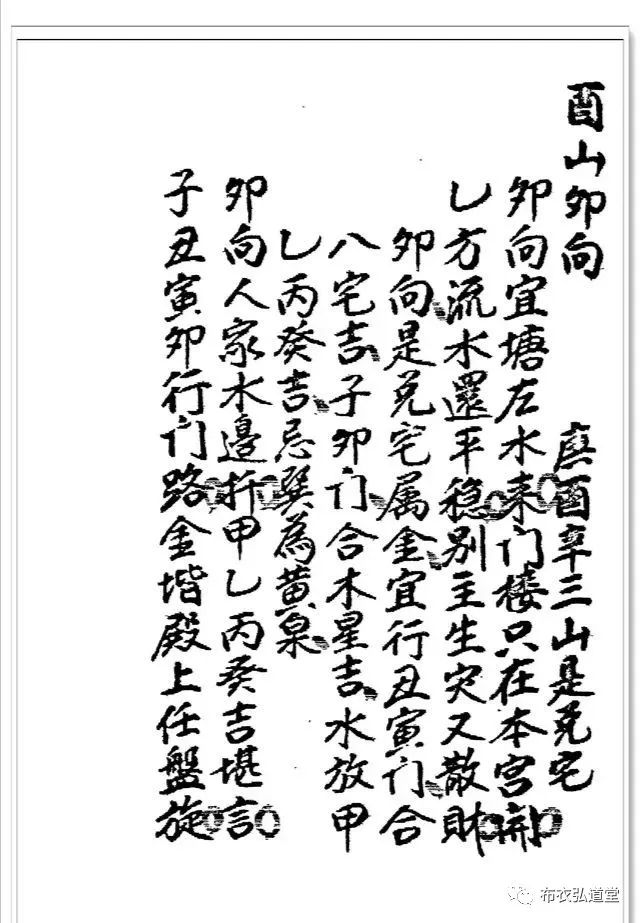 酉山卯向　庚酉辛三山是兑宅
卯向宜塘左水来门楼只在本宫開
乚方流水還平稳别主生灾又散財
卯向是兑宅属金宜行丑寅门合
八宅吉子卯门合木星吉水放甲
乚丙癸吉忌巽為黄泉
卯向人家水邊扦甲乚丙癸吉堪言
子丑寅卯行门路金堦殿上任盤旋
布衣弘道堂